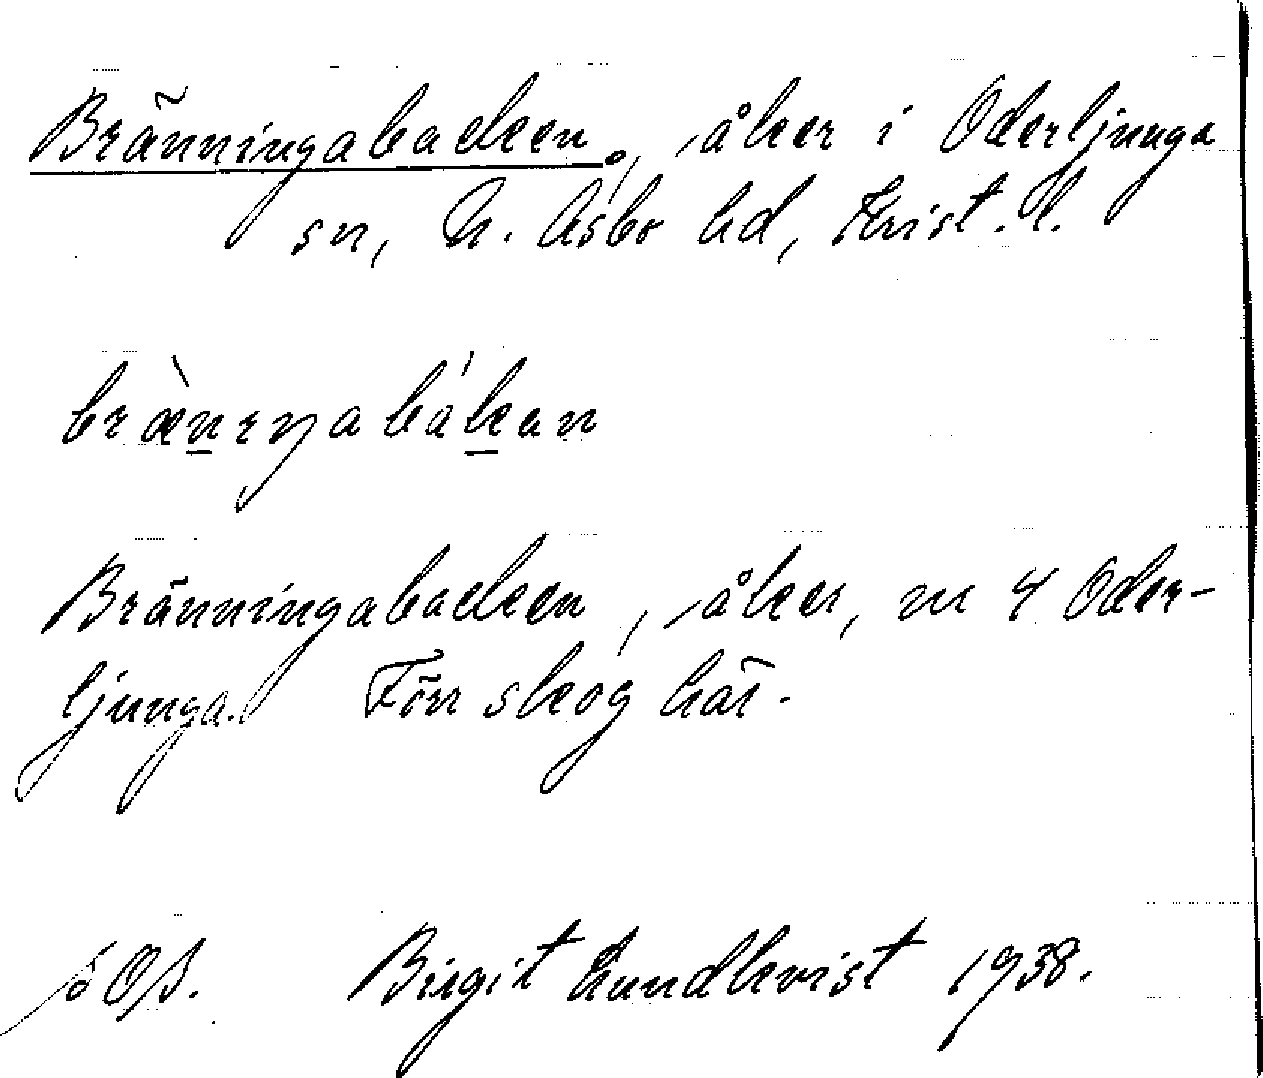 Bränningabacken, åker i Oderljunga
sn, N. Åsbo hd, Krist. l.
bræ̀nıŋabákan
Bränningabacken, åker, m 4 Oder-
ljunga. Förr skog här.
Birgit Lundkvist 1938.